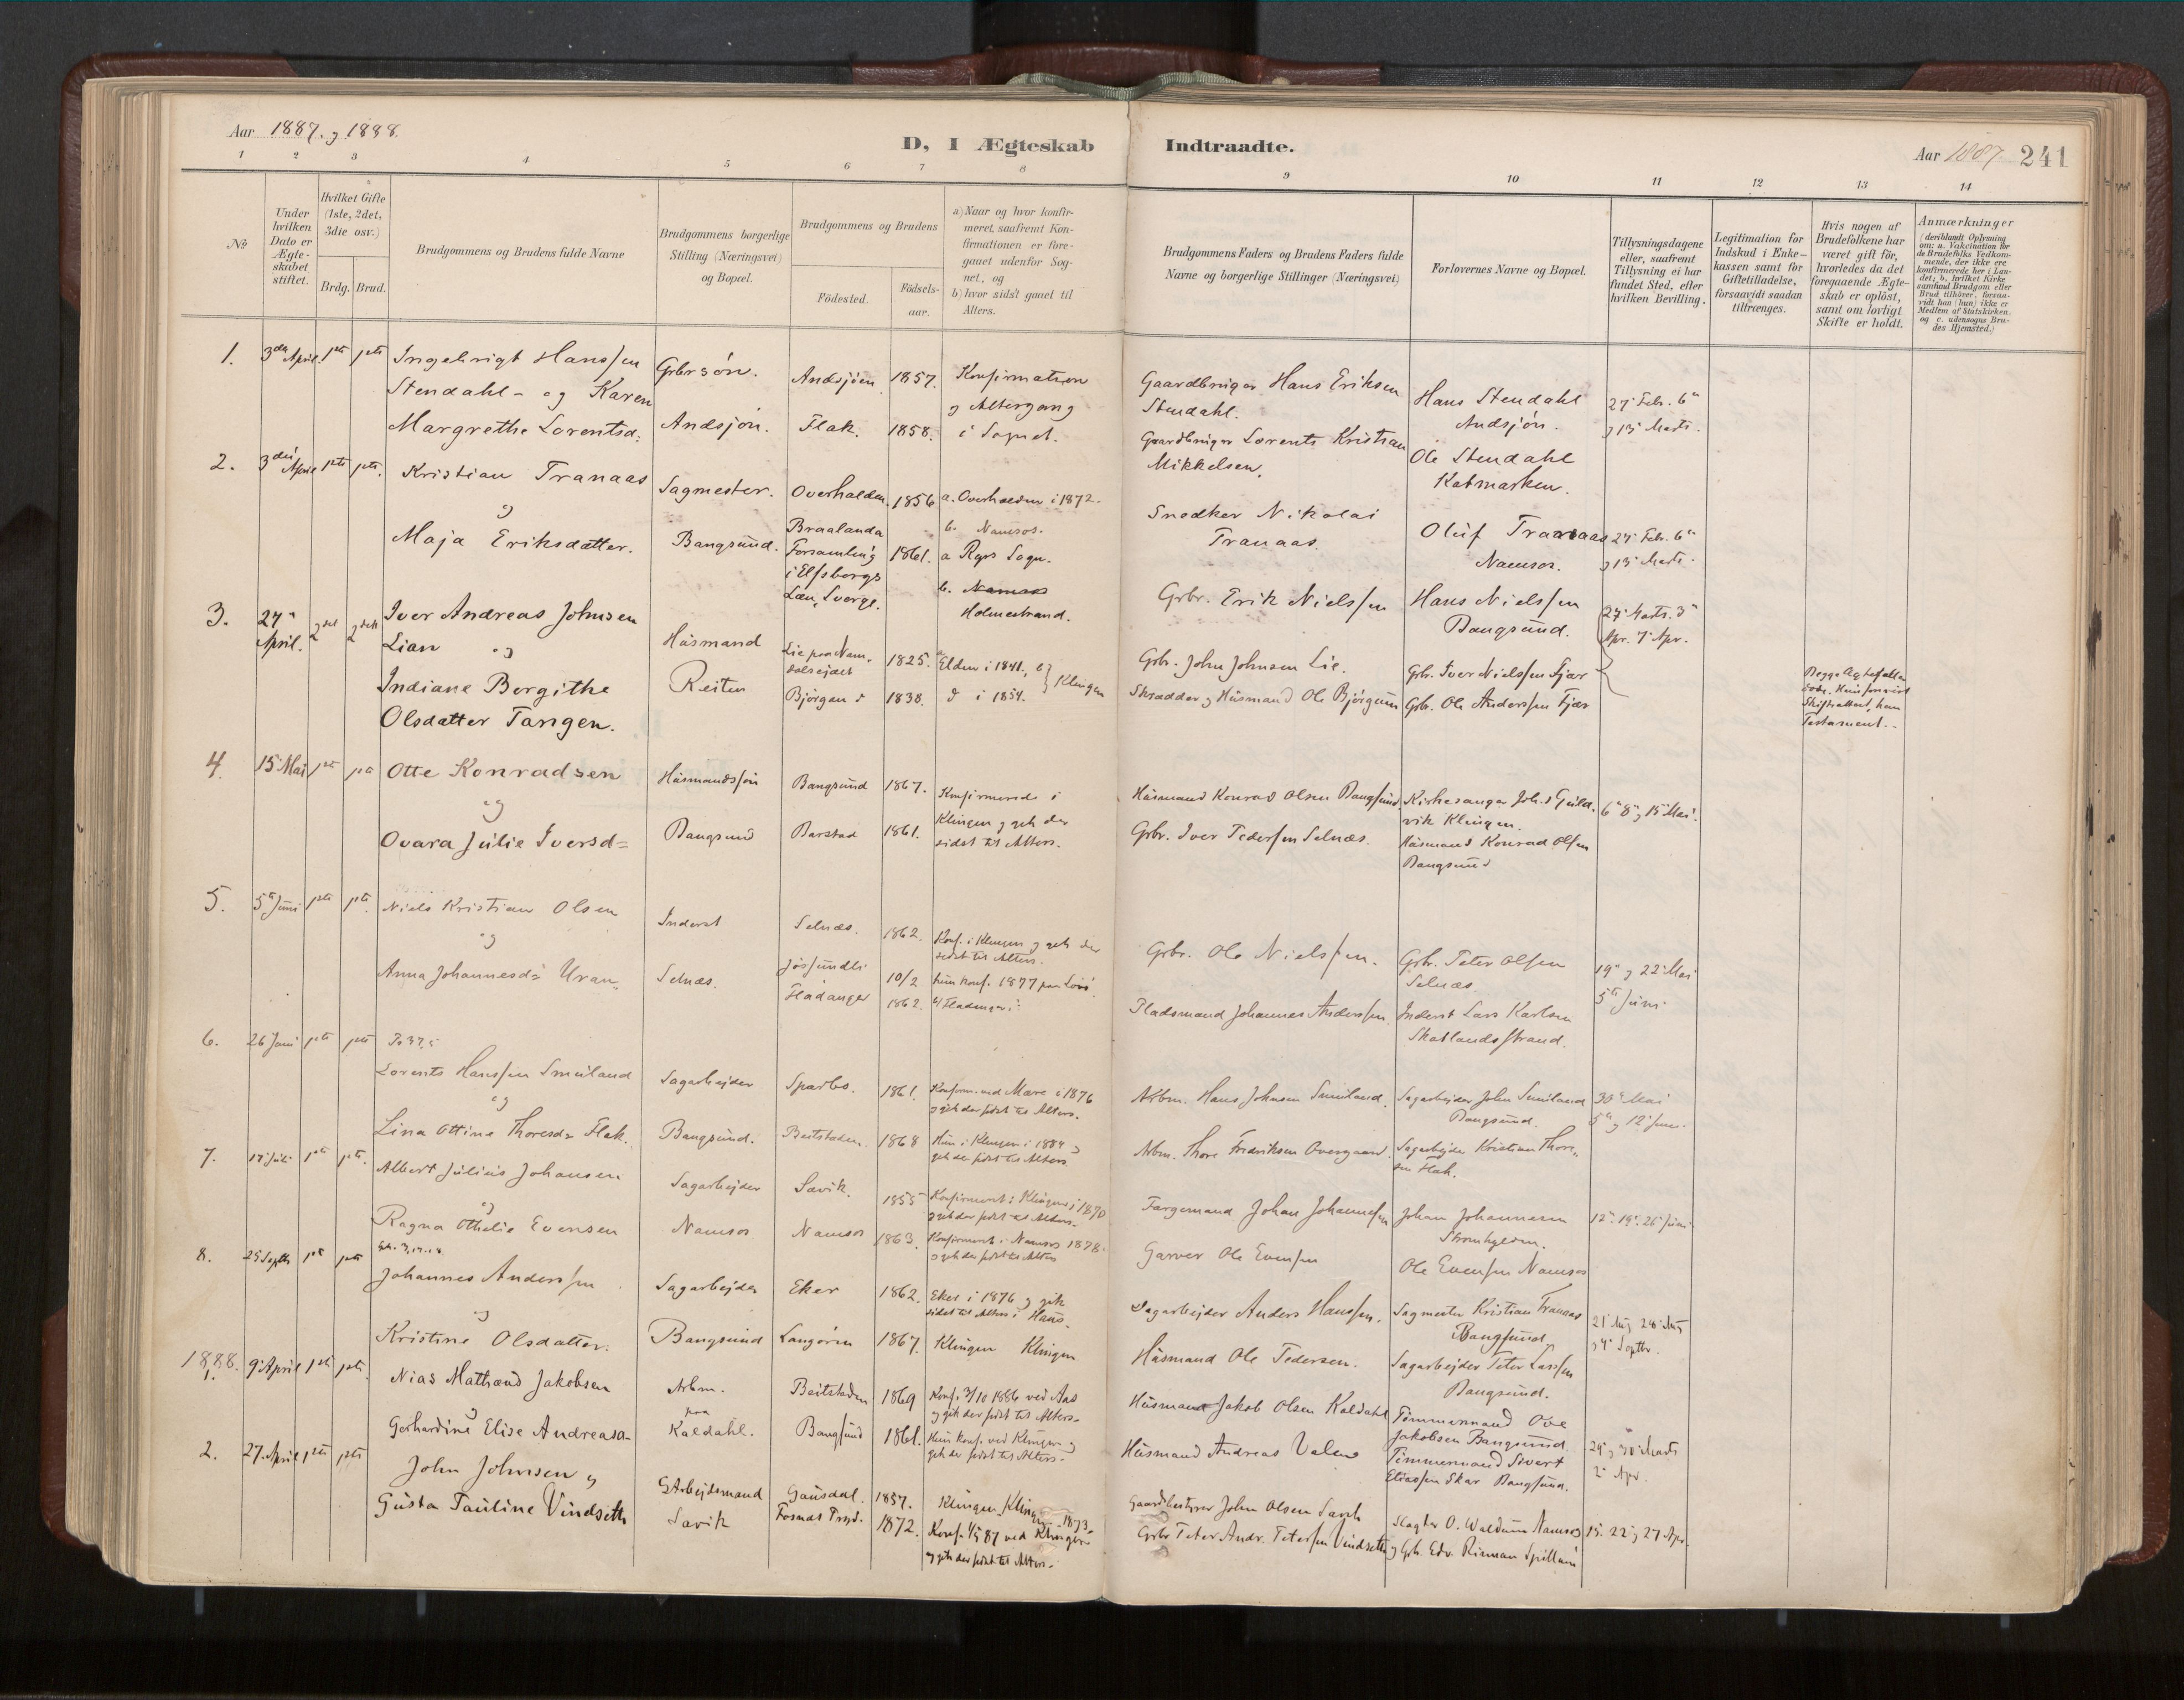 Aar 1887. og 1888.
D, I Ægteskab Indtraadte.
Aar 1887 241
1 2 3 4 5 6 7 8 9 10 11 12 13 14
No
Under hvilken Dato er Ægteskabet stiftet.
Hvilket Gifte (1ste, 2det, 3die osv.)
Brdg. Brud.
Brudgommens og Brudens fulde Navne
Brudgommens borgerlige Stilling (Næringsvei) og Bopæl.
Brudgommens og Brudens
Födested.
Födsels-aar.
a) Naar og hvor konfirmeret, saafremt Konfirmationen er foregaaet udenfor Sognet, og
b) hvor sidst gaaet til Alters.
Brudgommens Faders og Brudens Faders fulde Navne og borgerlige Stillinger (Næringsvei)
Forlovernes Navne og Bopæl.
Tillysningsdagene eller, saafremt Tillysning ei har fundet Sted, efter hvilken Bevilling.
Legitimation for Indskud i Enkekassen samt for Giftetilladelse, forsaavidt saadan tiltrænges.
Hvis nogen af Brudefolkene har været gift för, hvorledes da det foregaaende Ægteskab er oplöst, samt om lovligt Skifte er holdt.
Anmærkninger
(deriblandt Oplysning om: a. Vakcination for de Brudefolks Vedkommende, der ikke ere konfirmerede her i Landet; b. hvilket Kirkesamfund Brudgom eller Brud tilhörer, forsaavidt han (hun) ikke er Medlem af Statskirken, og c. udensogns Brudes Hjemsted.)
1. 3die April. 1ste 1ste
Ingebrigt Hanssen
Stendahl - og Karen
Margrethe Lorentsd:
Grbrsön.
Andsjön.
Andsjöen 1857.
Flak. 1858.
Konfirmation
og Altergang
i Sognet.
Gaardbruger Hans Eriksen
Stendahl.
Gaardbruger Lorents Kristian
Mikkelsen.
Hans Stendahl
Andsjön.
Ole Stendahl
Katmarken.
27 Febr. 6te
og 13 Marts.
2. 3die April 1ste 1ste.
Kristian Tranaas
og
Maja Eriksdatter.
Sagmester.
Bangsund.
Overhalden. 1856
Braalanda
Forsamling 1861.
i Elfsborgs
Læn, Sverge.
a. Overhalden i 1872.
b. Namsos.
a Rys Sogn.
b. Namsos
Holmestrand.
Snedker Nikolai
Tranaas.
Grbr. Erik Nielssen
Oluf Tranaas
Namsos.
Hans Nielssen
Bangsund.
27 Febr. 6te
og 13 Marts.
3. 24de April. 2det 2det
Iver Andreas Johnsen
Lian og
Indiane Bergithe
Olsdatter Tangen.
Husmand
Reiten
Lie paa Nam-
dalseidet 1825.
Björgan 1838.
Elden i 1841,
i 1854.
Klingen
Grbr. John Johnsen Lie.
Skrædder og Husmand Ole Björgum
Grb. Iver Nielssen Fjær
Grb. Ole Anderssen Fjær
27 Marts. 3
Apr. 7 Apr.
Testament.
4. 15 Mai 1ste 1ste
Otte Konradsen
og
Ovara Julie Iversd=
Husmandssön
Bangsund
Bangsund 1867.
Barstad 1861.
Konfirmerede i
Klingen og gik der
sidst til Alters.
Husmand Konrad Olsen Bangsund.
Grbr. Iver Pedersen Selnæs.
Kirkesanger Joh. Guld-
vik Klingen.
Husmand Konrad Olsen
Bangsund
6te 8de og 15 Mai.
5. 5te Juni 1ste 1ste.
Niels Kristian Olsen
og
Anna Johannesd= Uran
Inderst
Selnæs.
Selnæs. 1862.
Jössundli
Fladanger 10/2 1862.
Konf. i Klingen og gik der
sidst til Alters.
hun konf. 1877 paa Lövö
Grbr. Ole Nielssen.
Pladsmand Johannes Anderssen.
Grb. Peter Olsen
Selnæs
Inderst Lars Karlsen
Skatlandsstrand.
19de og 22 Mai
5te Juni
6. 26 Juni 1ste 1ste
Ps 37,5
Lorents Hanssen Smuiland
og
Lina Ottine Thoresd= Flak.
Sagarbejder
Bangsund.
Sparbo. 1861.
Beitstaden 1868
Konfirm. ved Mære i 1876
og gik der sidst til Alters.
Hun i Klingen i 1884 og
gik der sidst til Alters.
Arbm. Hans Johnsen Smuiland.
Arbm. Thore Fredriksen Overgaard.
Sagarbejder John Smuiland
Bangsund.
Sagarbejder Kristian Thore-
sen Flak.
30te Mai
5te og 12 Juni.
7. 17 Juli 1ste 1ste.
Albert Julius Johansen
og
Ragna Othelie Evensen
Sagarbejder
Namsos
Savik. 1855
Namsos 1863.
Konfirmeret i Klingen i 1870
og gik der sidst til Alters.
Konfirmeret i Namsos 1878.
og gik der sidst til Alters
Færgemand Johan Johannessen
Garver Ole Evensen
Johan Johannesen
Strömhylden.
Ole Evensen Namsos
12te 19. 26 Juni
8. 25 Septbr 1ste 1ste
Johannes Anderssen
og
Kristine Olsdatter.
Sagarbejder
Bangsund
Eker 1862.
Langören 1867.
Eker i 1876 og gik
sidst til Alters i Haus.
Klingen Klingen
Sagarbejder Anders Hanssen.
Husmand Ole Pedersen.
Sagmester Kristian Tranaas
Bangsund.
Sagarbejder Peter Larssen
Bangsund.
21 Aug 28 Aug
og 4 Septbr.
1888.
1. 9 April 1ste 1ste.
Nias Mathæus Jakobsen
og
Gerhardine Elise Andreasd-
Arbm.
paa
Kaldahl.
Beitstaden 1869
Bangsund 1861.
Konf. 3/10 1886 ved Aas
og gik der sidst til Alters.
Hun konf. ved Klingen og
gik der sidst til Alters.
Husmand Jakob Olsen Kaldahl
Husmand Andreas Valen
Tömmermand Ove
Jakobsen Bangsund.
Tömmermand Sivert
Eliassen Skar Bangsund.
29 og 30 Marts
2 Apr.
2. 27. April 1ste 1ste
John Johnsen og
Gusta Pauline Vindseth
Arbejdsmand
Savik
Gausdal. 1857.
Fosnæs Prgd. 1872.
Klingen Klingen 1873.
Konf. 87 ved Klingen
og gik der sidst til Alters.
Gaardbestyrer John Olsen Savik
Grbr Peter Andr. Petersen Vindseth
Slagter O. Waldum Namsos
og Grb. Edv. Rinnan Spillum
15. 22 og 27 Apr.